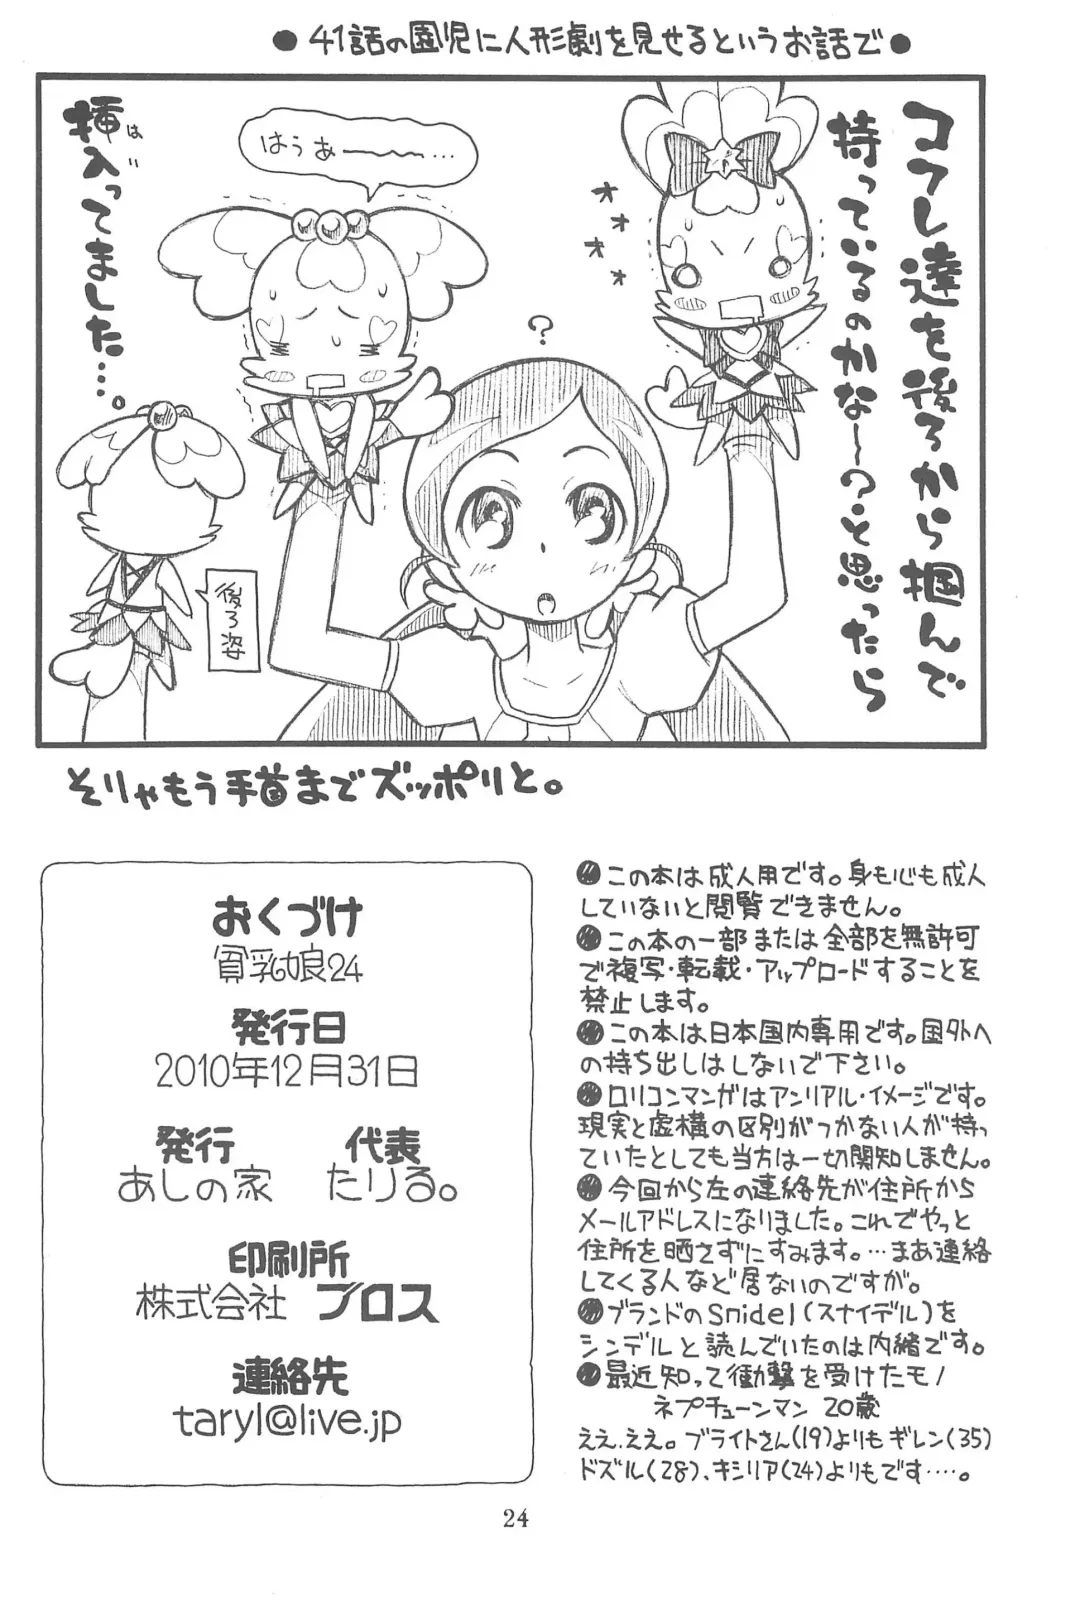 ●41話の園児に人形劇を見せるというお話で●
コフレ達を後ろから掴んで
持っているのかな〜?と思ったら
オオオ
はうあ〜〜…
?
挿入ってました…。
はい
後ろ姿
そりゃもう手首までズッポリと。
おくづけ
貧乳娘24
発行日
2010年12月31日
発行 代表
あしの家 たりる。
印刷所
株式会社 ブロス
連絡先
taryl@live.jp
●この本は成人用です。身も心も成人
していないと閲覧できません。
●この本の一部または全部を無許可
で複写・転載・アップロードすることを
禁止します。
●この本は日本国内専用です。国外へ
の持ち出しはしないで下さい。
●ロリコンマンガはアンリアル・イメージです。
現実と虚構の区別がつかない人が持っ
ていたとしても当方は一切関知しません。
●今回から左の連絡先が住所から
メールアドレスになりました。これでやっと
住所を晒さずにすみます。…まあ連絡
してくる人など居ないのですが。
●ブランドのSnidel(スナイデル)を
シンデルと読んでいたのは内緒です。
●最近知って衝撃を受けたモノ
ネプチューンマン 20歳
ええ.ええ。ブライトさん(19)よりもギレン(35)
ドズル(28)、キシリア(24)よりもです‥‥。
24